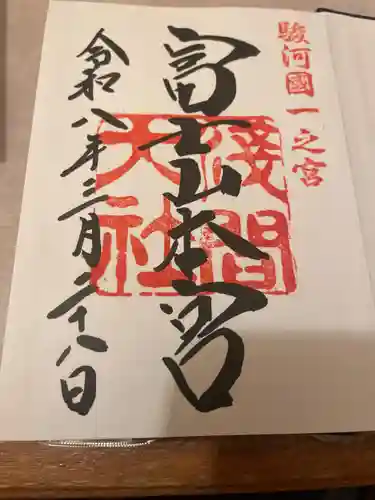 駿河國一之宮
富士山本宮
淺間大社
令和八年三月二十八日